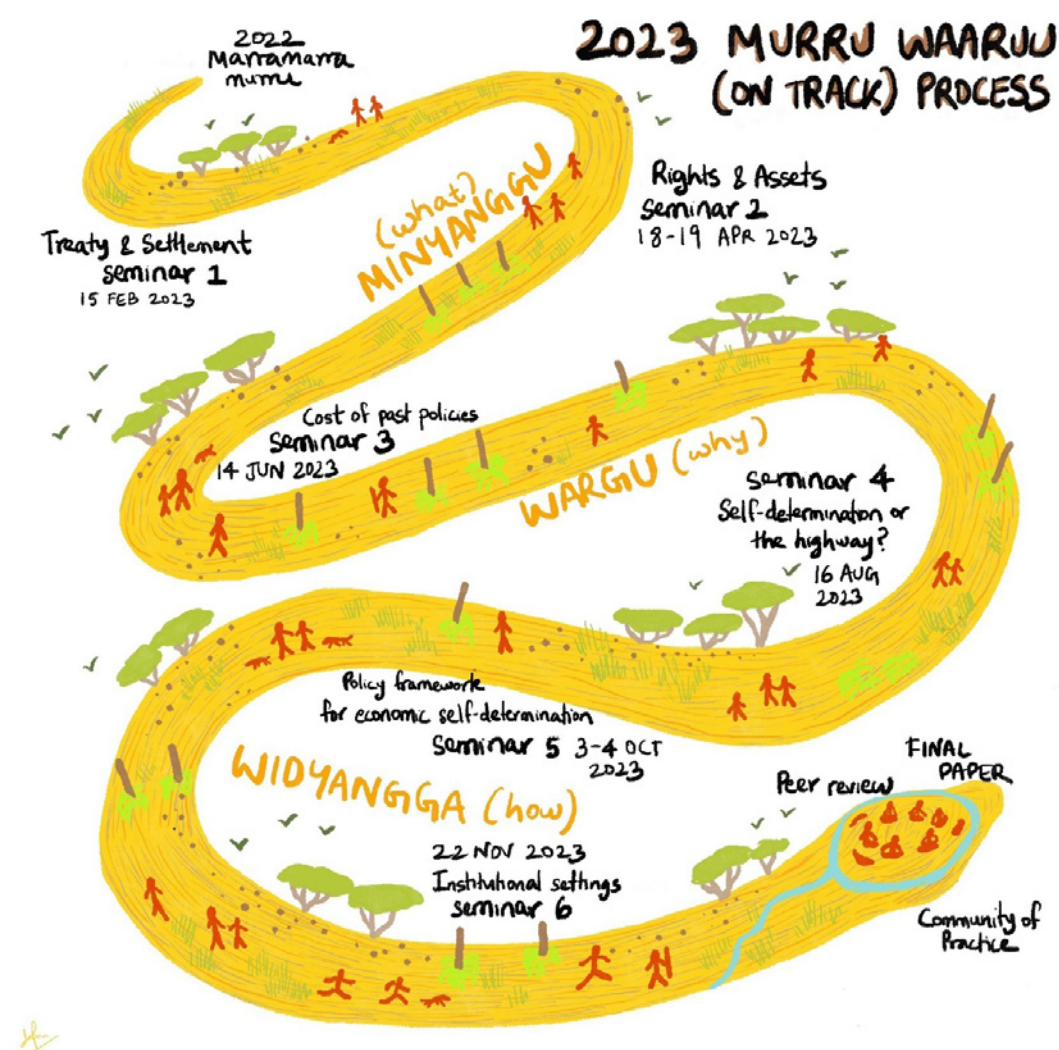 2023 MURRU WAARUU
(ON TRACK) PROCESS
2022
Marramarra
murru
Treaty & Settlement
seminar 1
15 FEB 2023
(what)
MINYANGGU
Rights & Assets
seminar 2
18-19 APR 2023
Cost of past policies
seminar 3
14 JUN 2023
WARGU (why)
seminar 4
Self-determination or
the highway?
16 AUG
2023
Policy framework
for economic self-determination
seminar 5 3-4 OCT
2023
WIDYANGGA (how)
22 NOV 2023
Institutional settings
seminar 6
Peer review
FINAL
PAPER
Community of
Practice